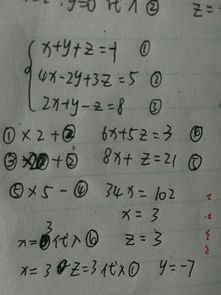 y=0 代入② z=
x+y+z=-1 ①
4x-2y+3z=5 ②
2x+y-z=8 ③
①×2+② 6x+5z=3 ④
③×2+② 8x+z=21 ⑤
⑤×5-④ 34x=102
x=3
x=3代入 z=3
x=3 z=3代入① y=-7